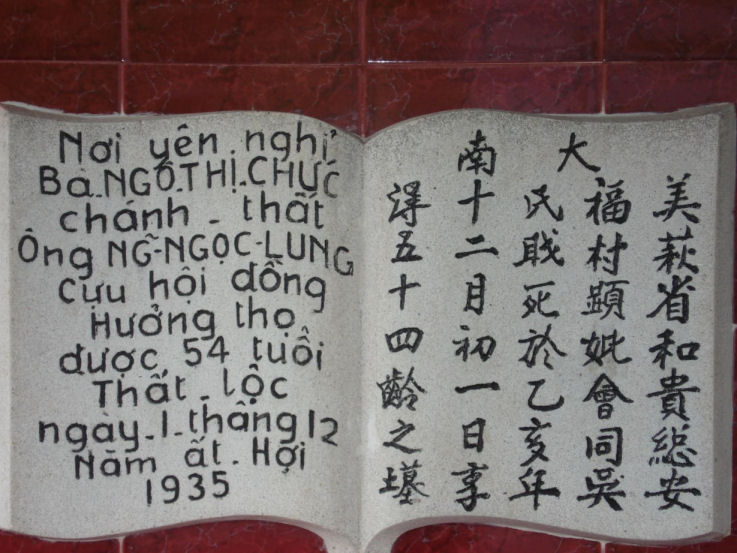 Nơi yên nghỉ
Bà.NGÔ.THỊ.CHỨC
chánh - thất
Ông NG~-NGỌC-LUNG
Cựu hội đồng
Hưởng thọ
được, 54 tuổi
Thất - lộc
ngày-1-tháng 12
Năm ất - Hợi
1935
美萩省和貴總安
福村顯妣會同吳
大
氏戝死於乙亥年
南
十二月初一日享
淂五十四齡之墓